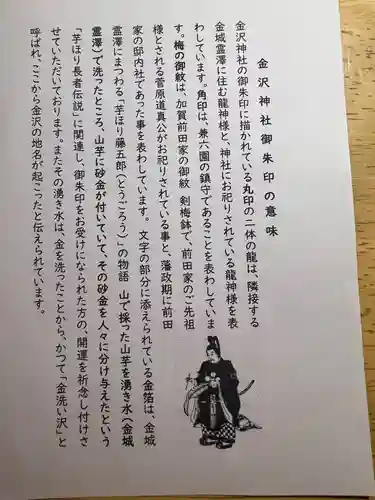 金沢神社御朱印の意味
金沢神社の御朱印に描かれている丸印の二体の龍は、隣接する
金城霊澤に住む龍神様と、神社にお祀りされている龍神様を表
わしています。角印は、兼六園の鎮守であることを表わしていま
す。梅の御紋は、加賀前田家の御紋 剣梅鉢で、前田家のご先祖
様とされる菅原道真公がお祀りされている事と、藩政期に前田
家の邸内社であった事を表わしています。 文字の部分に添えられている金箔は、金城
霊澤にまつわる「芋ほり藤五郎(とうごろう)」の物語 山で採った山芋を湧き水(金城
霊澤)で洗ったところ、山芋に砂金が付いていて、その砂金を人々に分け与えたという
「芋ほり長者伝説」に関連し、御朱印をお受けになられた方の、開運を祈念し付けさ
せていただいております。またその湧き水は、金を洗ったことから、かつて「金洗い沢」と
呼ばれ、ここから金沢の地名が起こったと伝えられています。